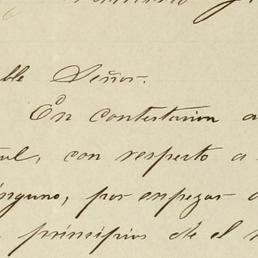 ble Señor.
En contestacion a
tul, con respecto a
inguno, por empezar a
principios de el